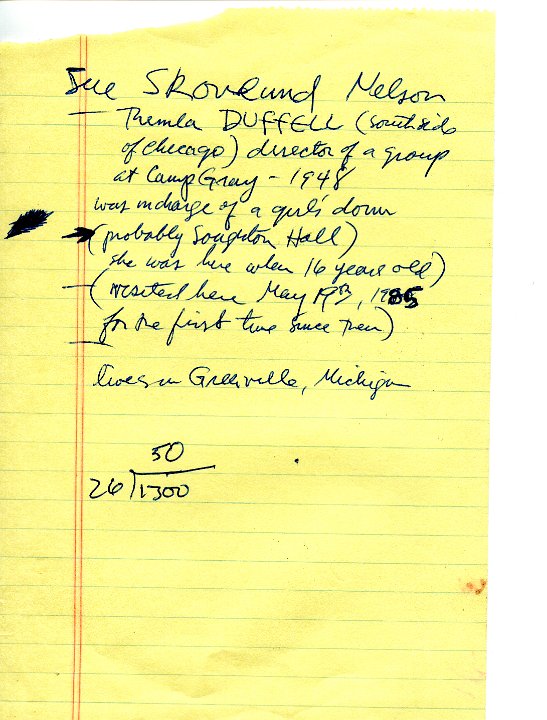 Sue Skovlund Nelson
— Themla DUFFELL (southside
of Chicago) director of a group
at Camp Gray - 1948
was in charge of a girl's dorm
(probably Houghton Hall)
she was here when 16 years old)
— (visited here May 19th, 1985
for the first time since then)
lives in Greenville, Michigan
50
26)1300